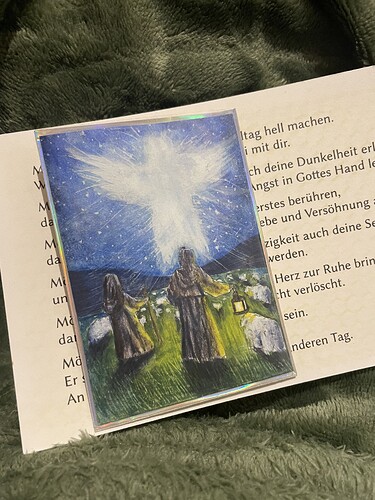 ltag hell machen.
i mit dir.
M ch deine Dunkelheit erl
W Angst in Gottes Hand le
M erstes berühren,
da ebe und Versöhnung a
M zigkeit auch deine Se
da werden.
Me Herz zur Ruhe brin
un ht verlöscht.
Mö sein.
da
Mö nderen Tag.
Er s
An